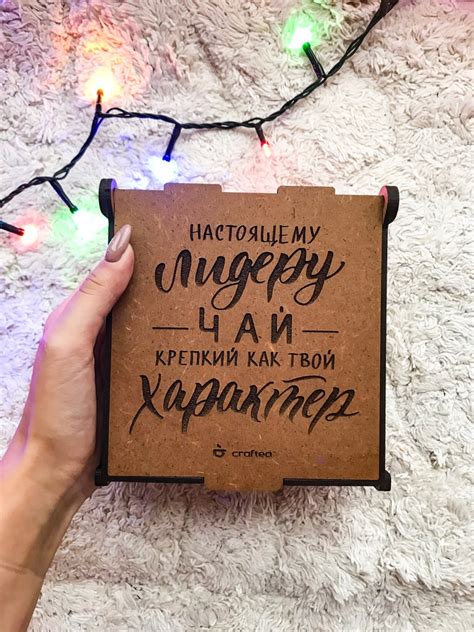 НАСТОЯЩЕМУ
лидеру
ЧАЙ
КРЕПКИЙ КАК ТВОЙ
характер
craftea